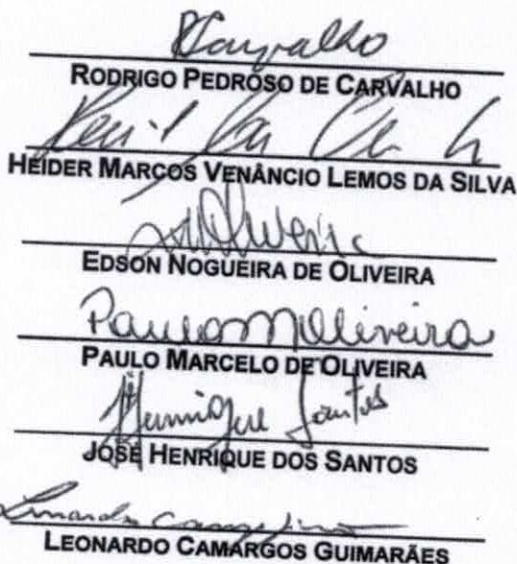 RCarvalho
RODRIGO PEDROSO DE CARVALHO
HEIDER MARCOS VENÂNCIO LEMOS DA SILVA
Oliveira
EDSON NOGUEIRA DE OLIVEIRA
PauloMOliveira
PAULO MARCELO DE OLIVEIRA
JHenrique Santos
JOSÉ HENRIQUE DOS SANTOS
Leonardo
LEONARDO CAMARGOS GUIMARÃES